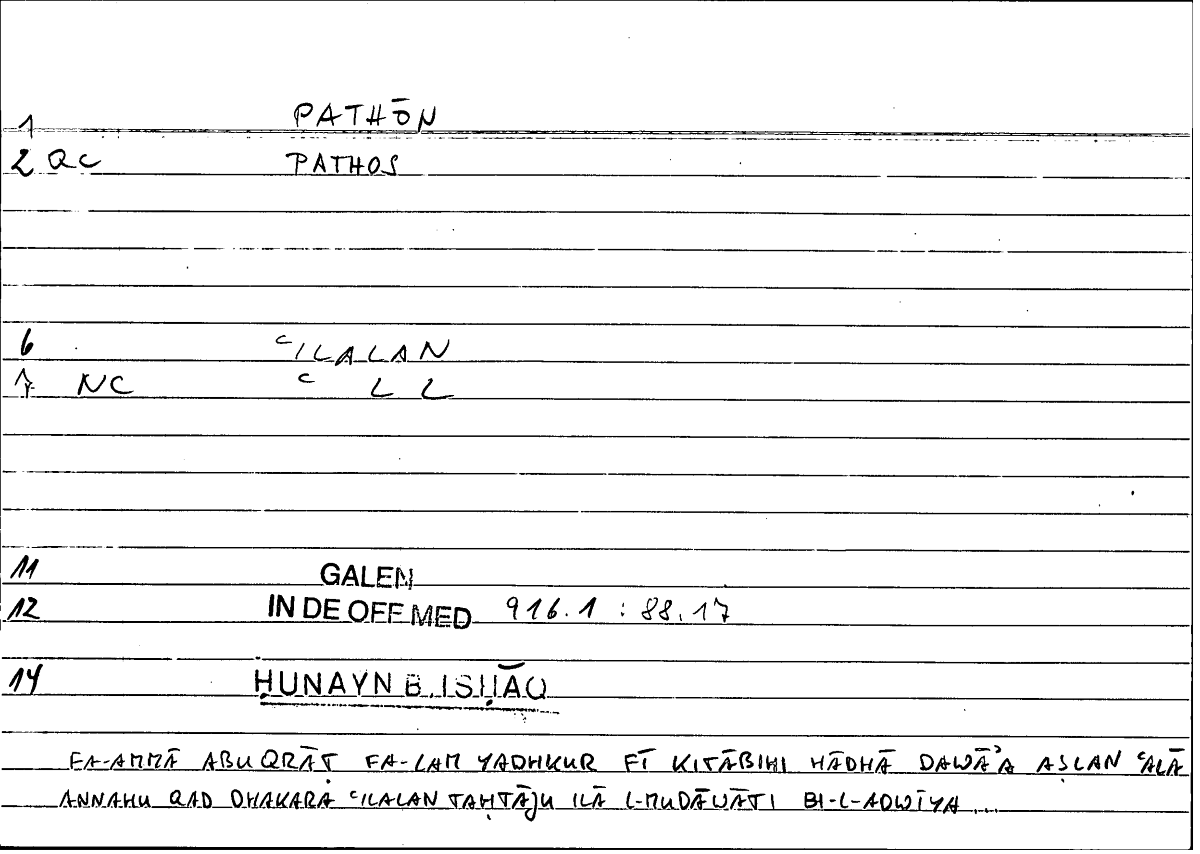 1 PATHŌN
2 QC PATHOS
6 ʿILALAN
7 NC ʿ L L
11 GALEN
12 IN DE OFF MED 916.1 : 88.17
14 ḤUNAYN B. ISḤĀQ
FA-AMMĀ ABUQRĀṬ FA-LAM YADHKUR FĪ KITĀBIHI HĀDHĀ DAWĀʾA AṢLAN ʿALĀ
ANNAHU QAD DHAKARA ʿILALAN TAḤTĀJU ILĀ L-MUDĀWĀTI BI-L-ADWĪYA ...